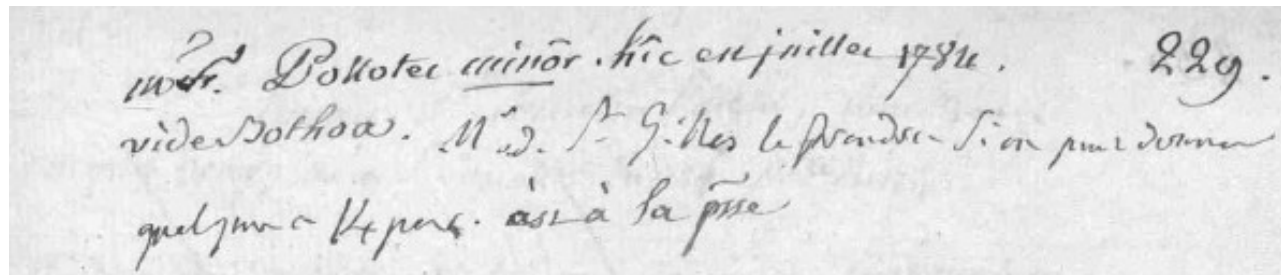 mr. Pollotec minōr. hîc en juillet 1784. 229.
vide Bothoa. Mr. d. St Gilles le prendra Si on peut donner
quelqu'un a 14 par à la p̄sse